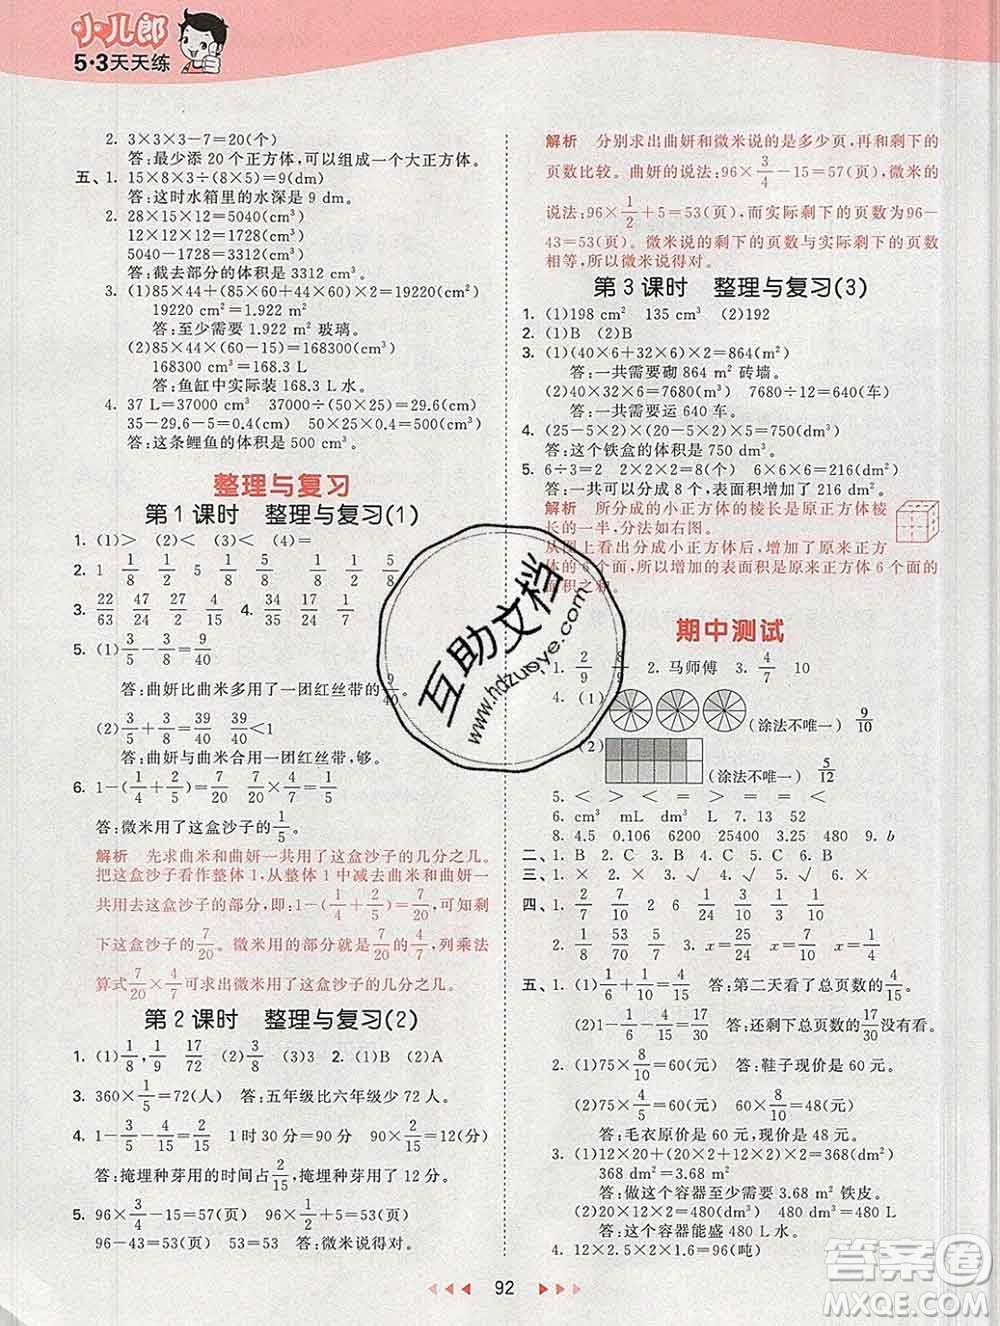 小儿郎
5·3天天练
2. 3×3×3-7=20(个)
答:最少添 20 个正方体，可以组成一个大正方体。
五、1. 15×8×3÷(8×5)=9(dm)
答:这时水箱里的水深是 9 dm。
2. 28×15×12=5040(cm³)
12×12×12=1728(cm³)
5040-1728=3312(cm³)
答:截去部分的体积是 3312 cm³。
3. (1)85×44+(85×60+44×60)×2=19220(cm²)
19220 cm²=1.922 m²
答:至少需要 1.922 m² 玻璃。
(2)85×44×(60-15)=168300(cm³)
168300 cm³=168.3 L
答:鱼缸中实际装 168.3 L 水。
4. 37 L=37000 cm³ 37000÷(25×50)=29.6(cm)
35-29.6-5=0.4(cm) 50×25×0.4=500(cm³)
答:这条鲤鱼的体积是 500 cm³。
整理与复习
第 1 课时 整理与复习(1)
1. (1)> (2)< (3)< (4)=
2. 1 1/8 1/2 5 1/5 1/8 1/6 1/8 1/2
3. 22/63 47/24 1/2 27/15 4. 34/24 1/7 1/2
5. (1)3/5-3/8=9/40
答:曲妍比曲米多用了一团红丝带的9/40。
(2)3/5+3/8=39/40 39/40<1
答:曲妍与曲米合用一团红丝带,够。
6. 1-(1/4+2/5)=7/20 7/20×4/7=1/5
答:微米用了这盒沙子的1/5。
解析 先求曲米和曲妍一共用了这盒沙子的几分之几。
把这盒沙子看作整体 1,从整体 1 中减去曲米和曲妍一
共用了这盒沙子的部分,即:1-(1/4+2/5)=7/20,可知剩
下这盒沙子的7/20。微米用的部分就是7/20的4/7,列乘法
算式7/20×4/7可求出微米用了这盒沙子的几分之几。
第 2 课时 整理与复习(2)
1. (1)1/8,1/9 17/72 (2)3/8 (3)3 2. (1)B (2)A
3. 360×1/5=72(人) 答:五年级比六年级少 72 人。
4. 1-3/5-4/15=2/15 1 时 30 分=90 分 90×2/15=12(分)
答:掩埋种芽用的时间占2/15,掩埋种芽用了 12 分。
5. 96×3/4-15=57(页) 96×1/2+5=53(页)
96-43=53(页) 53=53 答:微米说得对。
解析 分别求出曲妍和微米说的是多少页,再和剩下的
页数比较。曲妍的说法:96×3/4-15=57(页),微米的
说法:96×1/2+5=53(页),而实际剩下的页数为96-
43=53(页)。微米说的剩下的页数与实际剩下的页数
相等,所以微米说得对。
第 3 课时 整理与复习(3)
1. (1)198 cm² 135 cm³ (2)192
2. (1)B (2)B
3. (1)(40×6+32×6)×2=864(m²)
答:一共需要砌 864 m² 砖墙。
(2)40×32×6=7680(m³) 7680÷12=640(车)
答:一共需要运 640 车。
4. (25-5×2)×(20-5×2)×5=750(dm³)
答:这个铁盒的体积是 750 dm³。
5. 6÷3=2 2×2×2=8(个) 6×6×6=216(dm²)
答:一共可以分成 8 个,表面积增加了 216 dm²。
解析 所分成的小正方体的棱长是原正方体棱
长的一半,分法如右图。
从图上看出分成小正方体后,增加了原正方体
的 6 个面,所以增加的表面积是原正方体 6 个面的
面积之和。
期中测试
1. 2/9 8/9 2. 马师傅 3. 4/7 10
4. (1) (涂法不唯一) 9/10
(2) (涂法不唯一) 5/12
5. < < > > < >
6. cm³ mL dm³ m³ 7. 13 52
8. 4.5 0.106 6200 25400 3.25 480 9. b
二、1. B 2. C 3. A 4. C 5. C
三、1. × 2. × 3. √ 4. √ 5. √ 6. ×
四、1. 2/7 7/10 2 6 1/24 3/10 7/24
2. 1/8 53/10 7/48 3. x=25/24 x=7/10 x=7/50
五、1. (1)1/6+1/10=4/15 答:第二天看了总页数的4/15。
(2)1-1/6-4/15=17/30 答:还剩下总页数的17/30没有看。
2. (1)75×8/10=60(元) 答:鞋子现价是 60 元。
(2)75×4/5=60(元) 60×8/10=48(元)
答:毛衣原价是 60 元,现价是 48 元。
3. (1)12×20+(20×2+12×2)×2=368(dm²)
368 dm²=3.68 m²
答:做这个容器至少需要 3.68 m² 铁皮。
(2)20×12×2=480(dm³) 480 dm³=480 L
答:这个容器能盛 480 L 水。
4. 12×2.5×2×1.6=96(吨)
92
互助文档
www.hdzuoye.com
答案圈
MXQE.COM